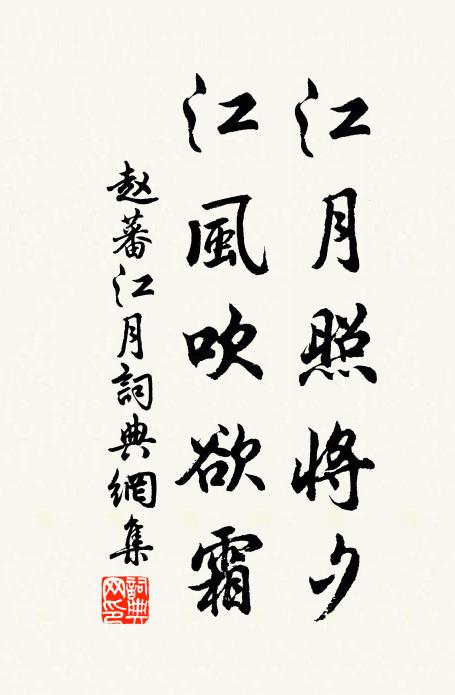 江月照將夕
江風吹欲霜
赵蕃江月詞典網集
詞典网印